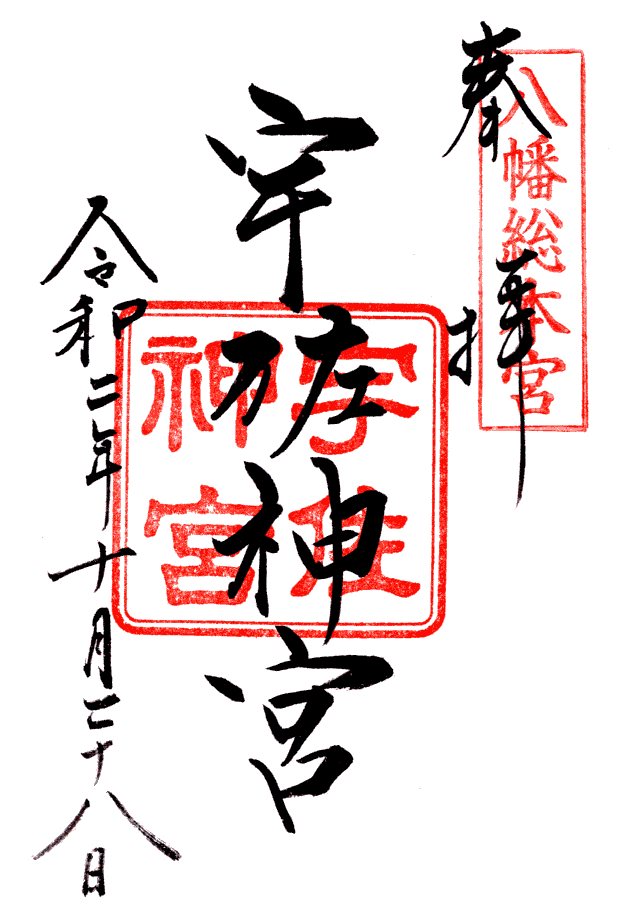 奉拝
八幡総本宮
宇佐神宮
宇佐
神宮
令和二年十月二十八日